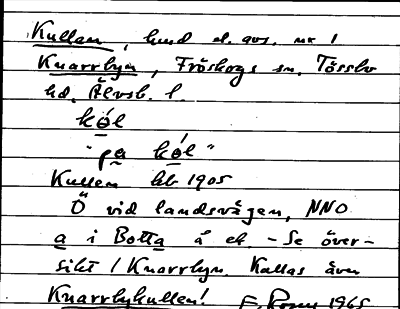 Kullen, hmd el. avs. nr 1
Knarrbyn, Fröskogs sn, Tössbo
hd. Älvsb. l.
kól
"pa kól"
Kullen kb 1905
Ö vid landsvägen, NNO
a i Botta å ek. - Se över-
sikt / Knarrbyn. Kallas även
Knarrbykullen! 1965